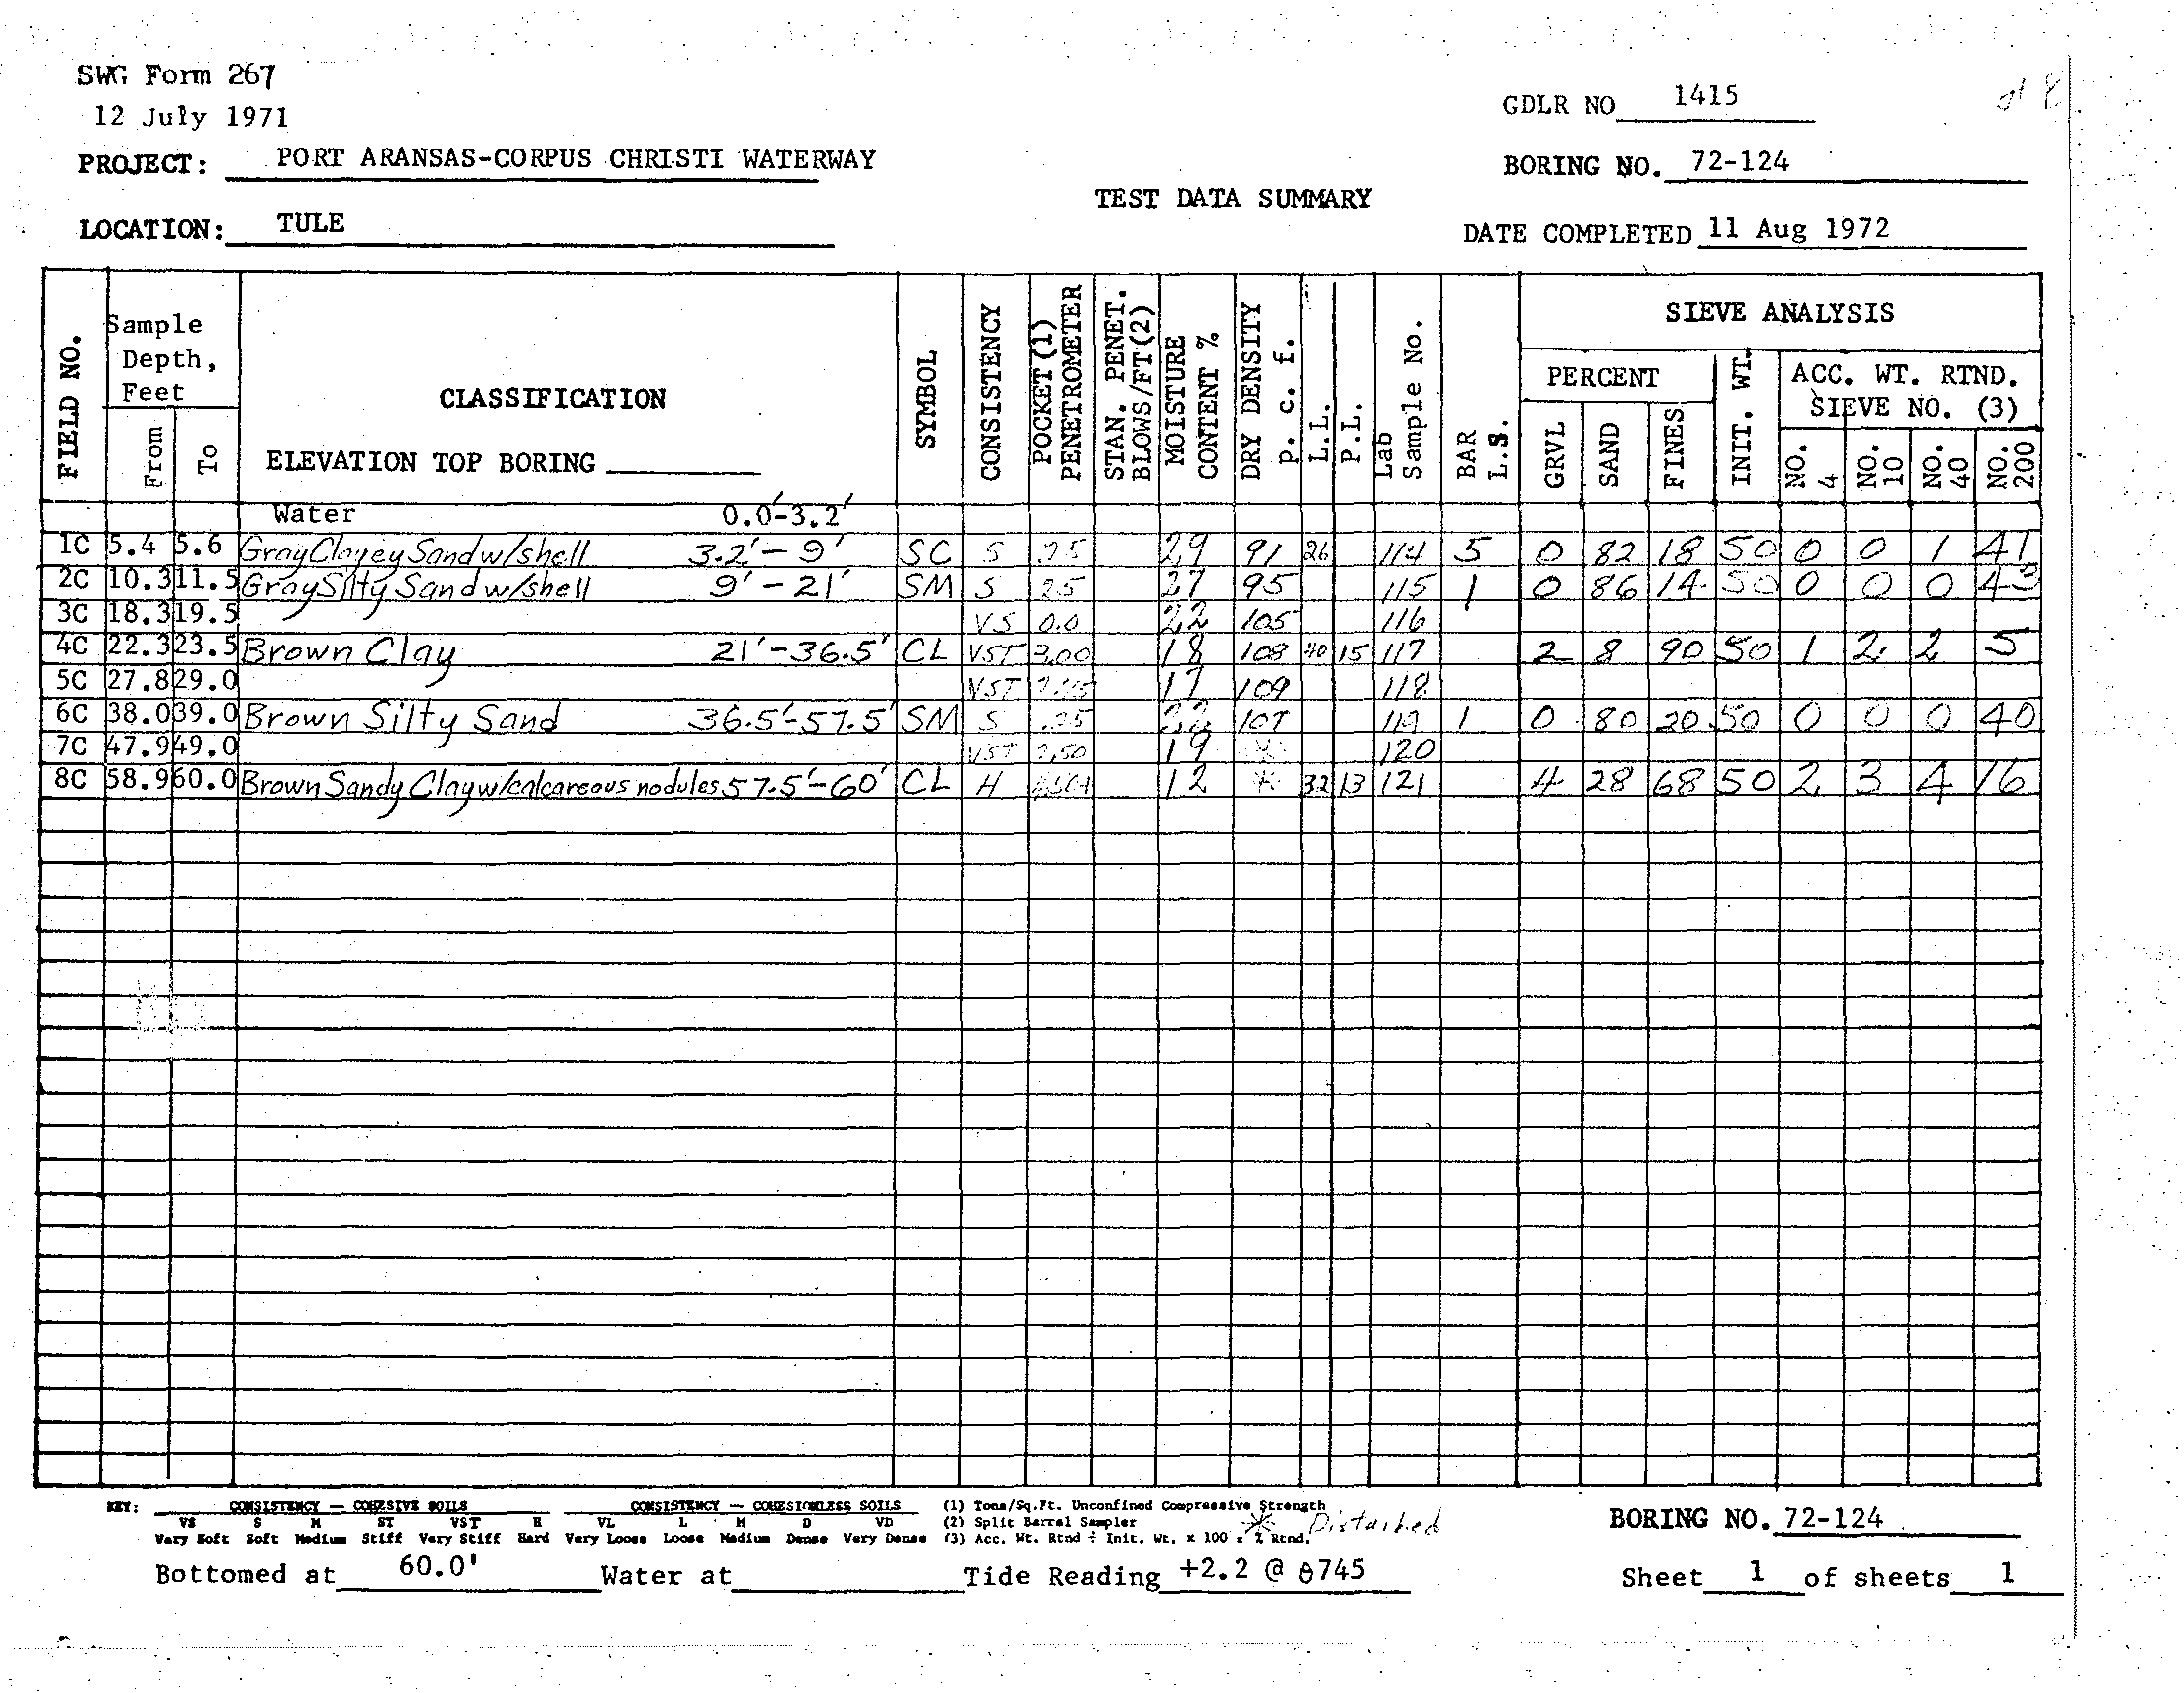 SWG Form 267
12 July 1971
GDLR NO 1415
PROJECT: PORT ARANSAS-CORPUS CHRISTI WATERWAY
BORING NO. 72-124
TEST DATA SUMMARY
LOCATION: TULE
DATE COMPLETED 11 Aug 1972
FIELD NO.
Sample Depth, Feet
From
To
CLASSIFICATION
ELEVATION TOP BORING
SYMBOL
CONSISTENCY
POCKET (1) PENETROMETER
STAN. PENET. BLOWS/FT(2)
MOISTURE CONTENT %
DRY DENSITY p. c. f.
L.L.
P.L.
Lab Sample No.
BAR L.S.
SIEVE ANALYSIS
PERCENT
GRVL
SAND
FINES
INIT. WT.
ACC. WT. RTND. SIEVE NO. (3)
NO. 4
NO. 10
NO. 40
NO. 200
Water 0.0'-3.2'
1C 5.4 5.6 Gray Clayey Sand w/shell 3.2'-9' SC S .25 29 91 26 114 5 0 82 18 50 0 0 1 41
2C 10.3 11.5 Gray Silty Sand w/shell 9'-21' SM S 25 27 95 115 1 0 86 14 50 0 0 0 43
3C 18.3 19.5 VS 0.0 22 105 116
4C 22.3 23.5 Brown Clay 21'-36.5' CL VST 3.00 18 108 40 15 117 2 8 90 50 1 2 2 5
5C 27.8 29.0 VST 17 109 118
6C 38.0 39.0 Brown Silty Sand 36.5'-57.5' SM S .25 22 107 119 1 0 80 20 50 0 0 0 40
7C 47.9 49.0 VST 2.50 19 * 120
8C 58.9 60.0 Brown Sandy Clay w/calcareous nodules 57.5'-60' CL H 12 * 32 13 121 4 28 68 50 2 3 4 16
KEY: CONSISTENCY — COHESIVE SOILS CONSISTENCY — COHESIONLESS SOILS (1) Tons/Sq.Ft. Unconfined Compressive Strength
VS S M ST VST H VL L M D VD (2) Split Barrel Sampler * Disturbed
Very Soft Soft Medium Stiff Very Stiff Hard Very Loose Loose Medium Dense Very Dense (3) Acc. Wt. Rtnd ÷ Init. Wt. x 100 = % Rtnd.
BORING NO. 72-124
Bottomed at 60.0' Water at Tide Reading +2.2 @ 0745
Sheet 1 of sheets 1